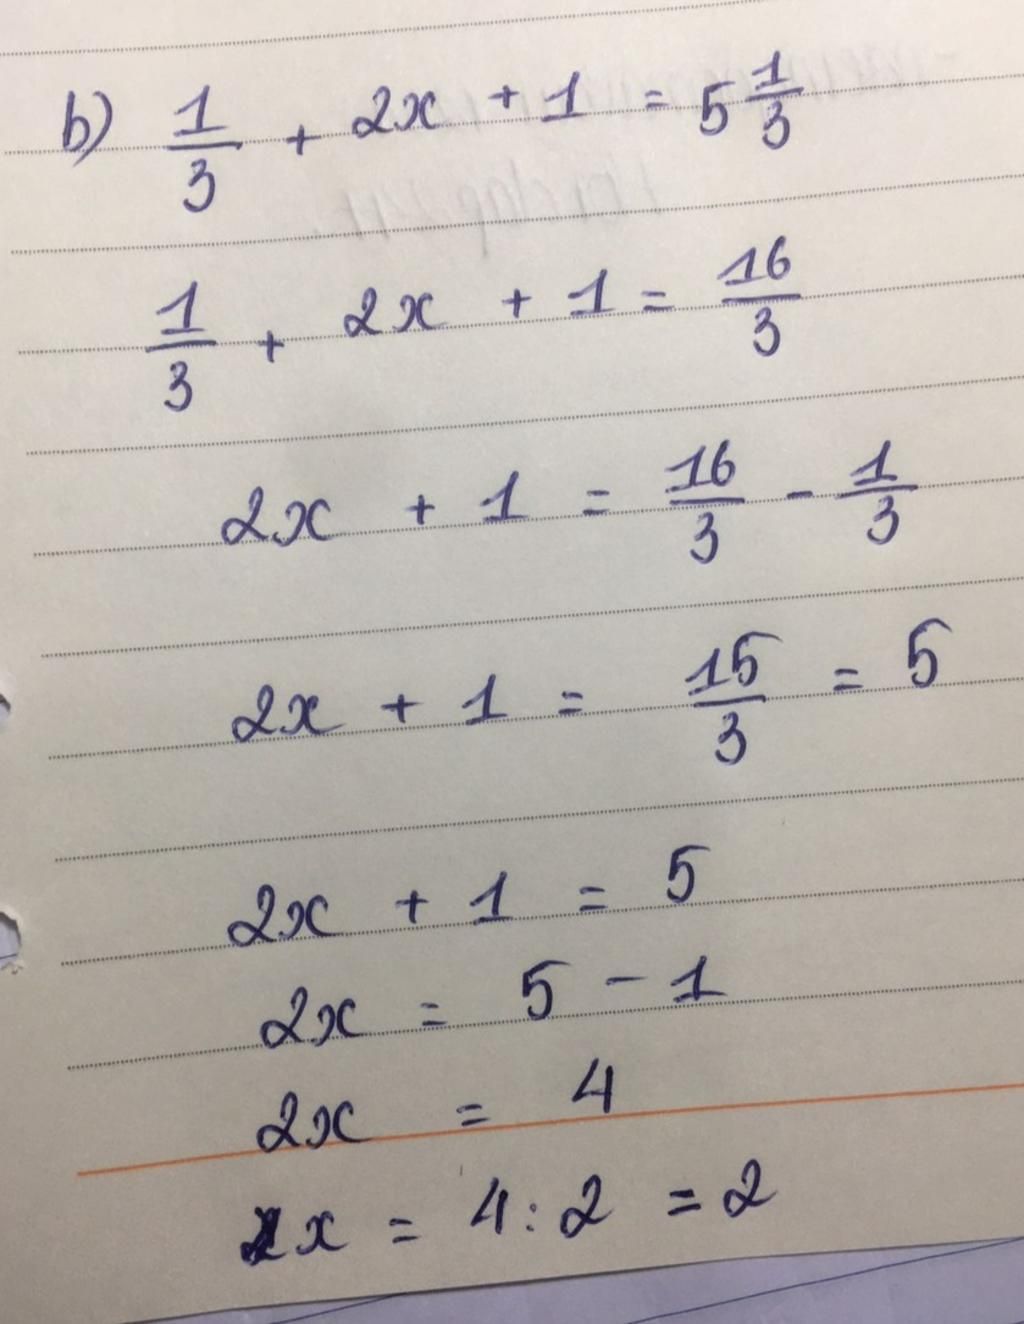 b) 1/3 + 2x + 1 = 5 1/3
1/3 + 2x + 1 = 16/3
2x + 1 = 16/3 - 1/3
2x + 1 = 15/3 = 5
2x + 1 = 5
2x = 5 - 1
2x = 4
x = 4 : 2 = 2